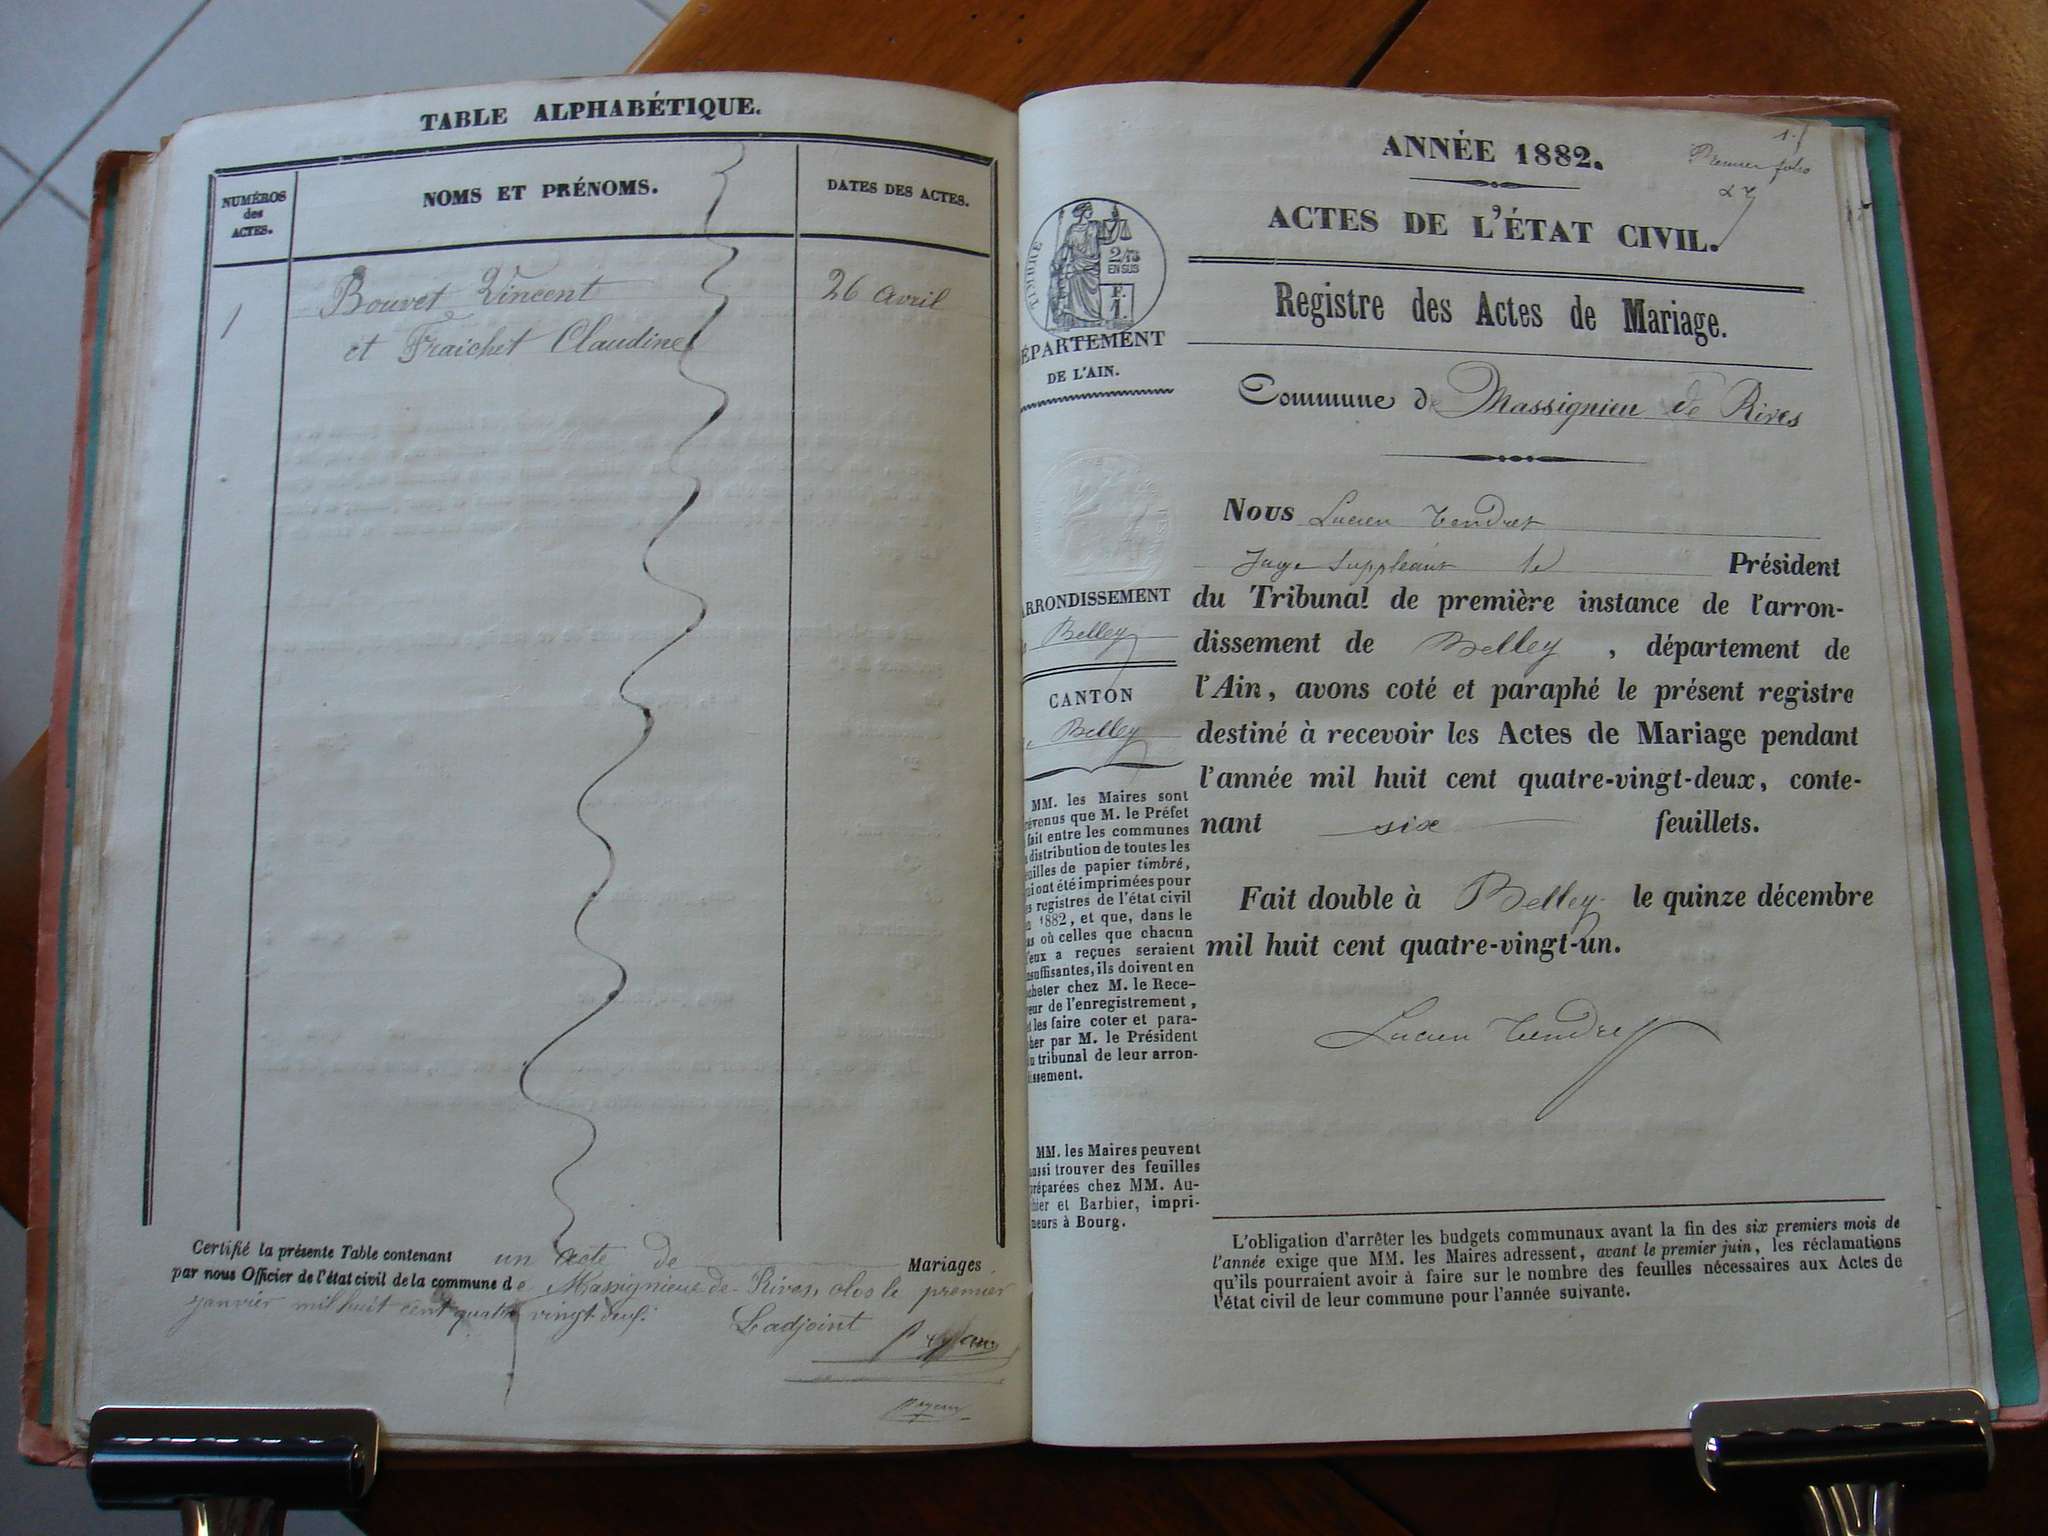 TABLE ALPHABÉTIQUE.
NUMÉROS
des
ACTES.
NOMS ET PRÉNOMS.
DATES DES ACTES.
1
Bouvet Vincent
26 avril
et Fraichet Claudine
Certifié la présente Table contenant un acte de Mariages
par nous Officier de l'état civil de la commune de Massignieu-de-Rives, clos le premier
janvier mil huit cent quatre vingt deux.
L'adjoint
1.
Premier folio
ANNÉE 1882.
ACTES DE L'ÉTAT CIVIL.
TIMBRE
2/10
EN SUS
F.
1.
Registre des Actes de Mariage.
ÉPARTEMENT
DE L'AIN.
Commune de Massignieu de Rives
Nous Lucien Tendret
Juge Suppléant le Président
du Tribunal de première instance de l'arron-
dissement de Belley, département de
l'Ain, avons coté et paraphé le présent registre
destiné à recevoir les Actes de Mariage pendant
l'année mil huit cent quatre-vingt-deux, conte-
nant six feuillets.
Fait double à Belley le quinze décembre
mil huit cent quatre-vingt-un.
Lucien Tendret
ARRONDISSEMENT
Belley
CANTON
Belley
MM. les Maires sont
révenus que M. le Préfet
fait entre les communes
distribution de toutes les
uilles de papier timbré,
ui ont été imprimées pour
s registres de l'état civil
1882, et que, dans le
as où celles que chacun
'eux a reçues seraient
nsuffisantes, ils doivent en
cheter chez M. le Rece-
eur de l'enregistrement,
t les faire coter et para-
her par M. le Président
u tribunal de leur arron-
issement.
MM. les Maires peuvent
ussi trouver des feuilles
réparées chez MM. Au-
hier et Barbier, impri-
neurs à Bourg.
L'obligation d'arrêter les budgets communaux avant la fin des six premiers mois de
l'année exige que MM. les Maires adressent, avant le premier juin, les réclamations
qu'ils pourraient avoir à faire sur le nombre des feuilles nécessaires aux Actes de
l'état civil de leur commune pour l'année suivante.